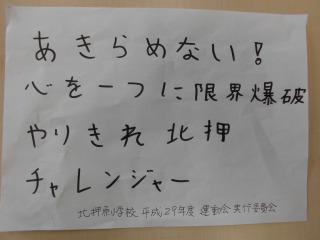 あきらめない!
心を一つに限界爆破
やりきれ北押
チャレンジャー
北押原小学校 平成29年度 運動会実行委員会